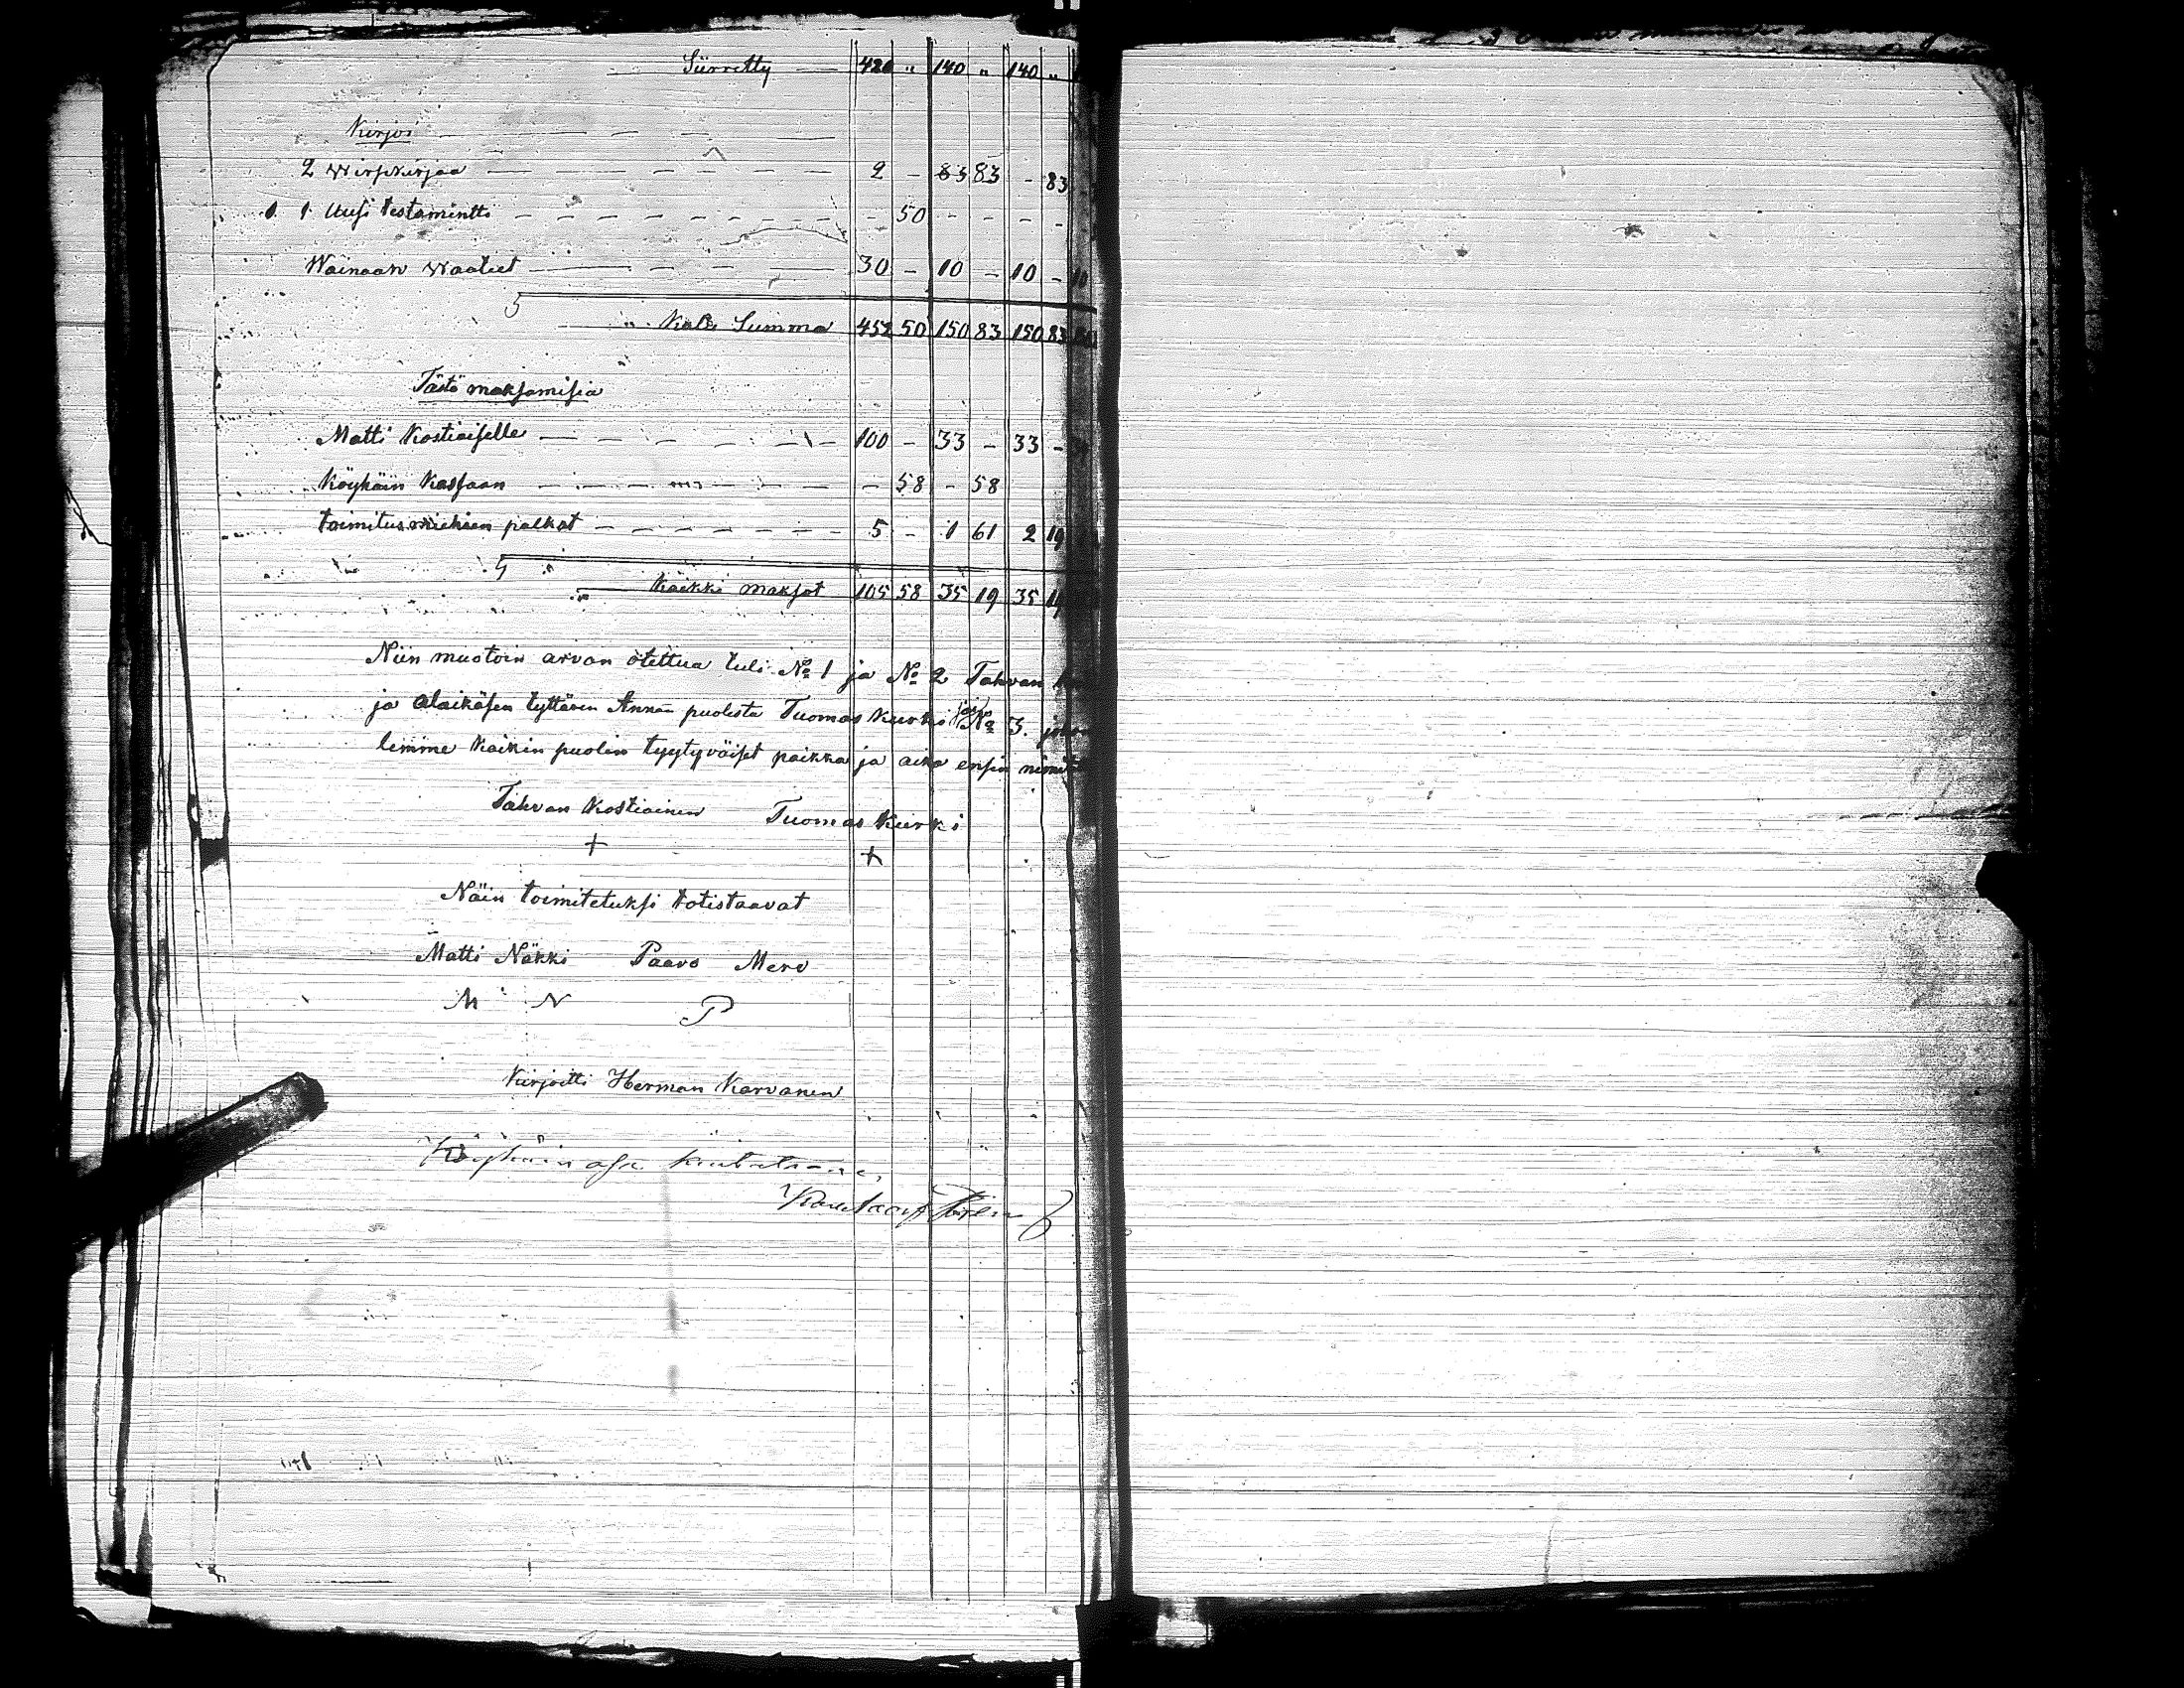 Siirretty — 420 " 140 " 140 "
Kirjoi
2 wirsikirjaa — 2 - 83 83 - 83
1 Uusi testamintti - - 50 - - - -
Wainaan waateet — 30 - 10 - 10 - 10
Koko Summa 452 50 150 83 150 83
Tästä maksamisia
Matti Kostiaiselle — 100 - 33 - 33 -
Köyhäin Kassaan — - 58 - 58
toimitusmiehien palkat — 5 - 1 61 2 19
Kaikki maksot 105 58 35 19 35 19
Niin muotoin arvan otettua tuli No 1 ja No 2 Tahvan
ja alaikäsen tyttären Annan puolesta Tuomas Kurki No 3.
limme kaikin puolin tyytyväiset paikka ja aika ensin
Tahvan Kostiainen Tuomas Kurki
+ +
Näin toimitetuksi totistaavat
Matti Näkki Paavo Mero
M N P
Kirjoitti Herman Karvanen
Köyhäin osa